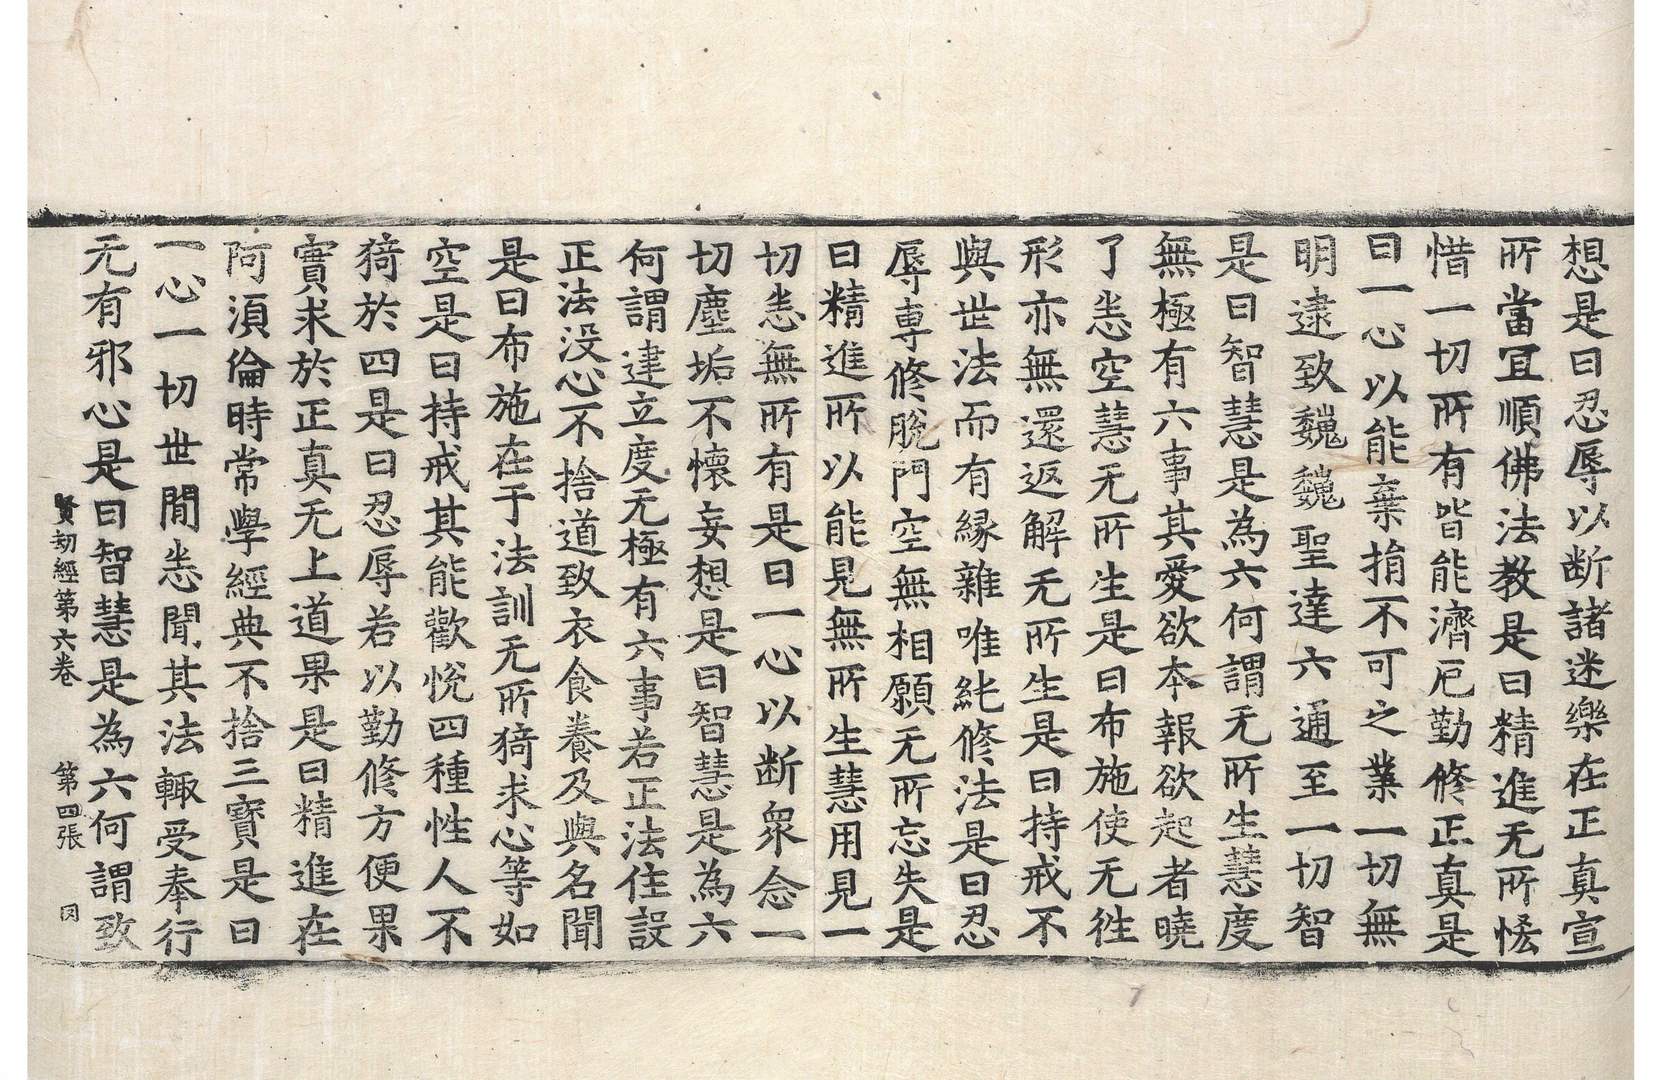 想是曰忍辱以断諸迷樂在正真宣
所當冝順佛法教是曰精進无所悋
惜一切所有皆能濟厄勤修正真是
曰一心以能棄捐不可之業一切無
明逮致巍巍聖達六通至一切智
是曰智慧是為六何謂无所生慧度
無極有六事其愛欲本報欲起者曉
了恙空慧无所生是曰布施使无徃
形亦無還返解无所生是曰持戒不
與世法而有縁雜唯純修法是曰忍
辱専修脫門空無相願无所忘失是
曰精進所以能見無所生慧用見一
切恙無所有是曰一心以断衆念一
切塵垢不懷妄想是曰智慧是為六
何謂建立度无極有六事若正法住設
正法没心不捨道致衣食養及與名聞
是曰布施在于法訓无所猗求心等如
空是曰持戒其能歡悅四種性人不
猗於四是曰忍辱若以勤修方便果
實求於正真无上道果是曰精進在
阿湏倫時常學經典不捨三寳是曰
一心一切世閒恙聞其法輙受奉行
无有邪心是曰智慧是為六何謂致
賢劫經第六卷 第四張 罔